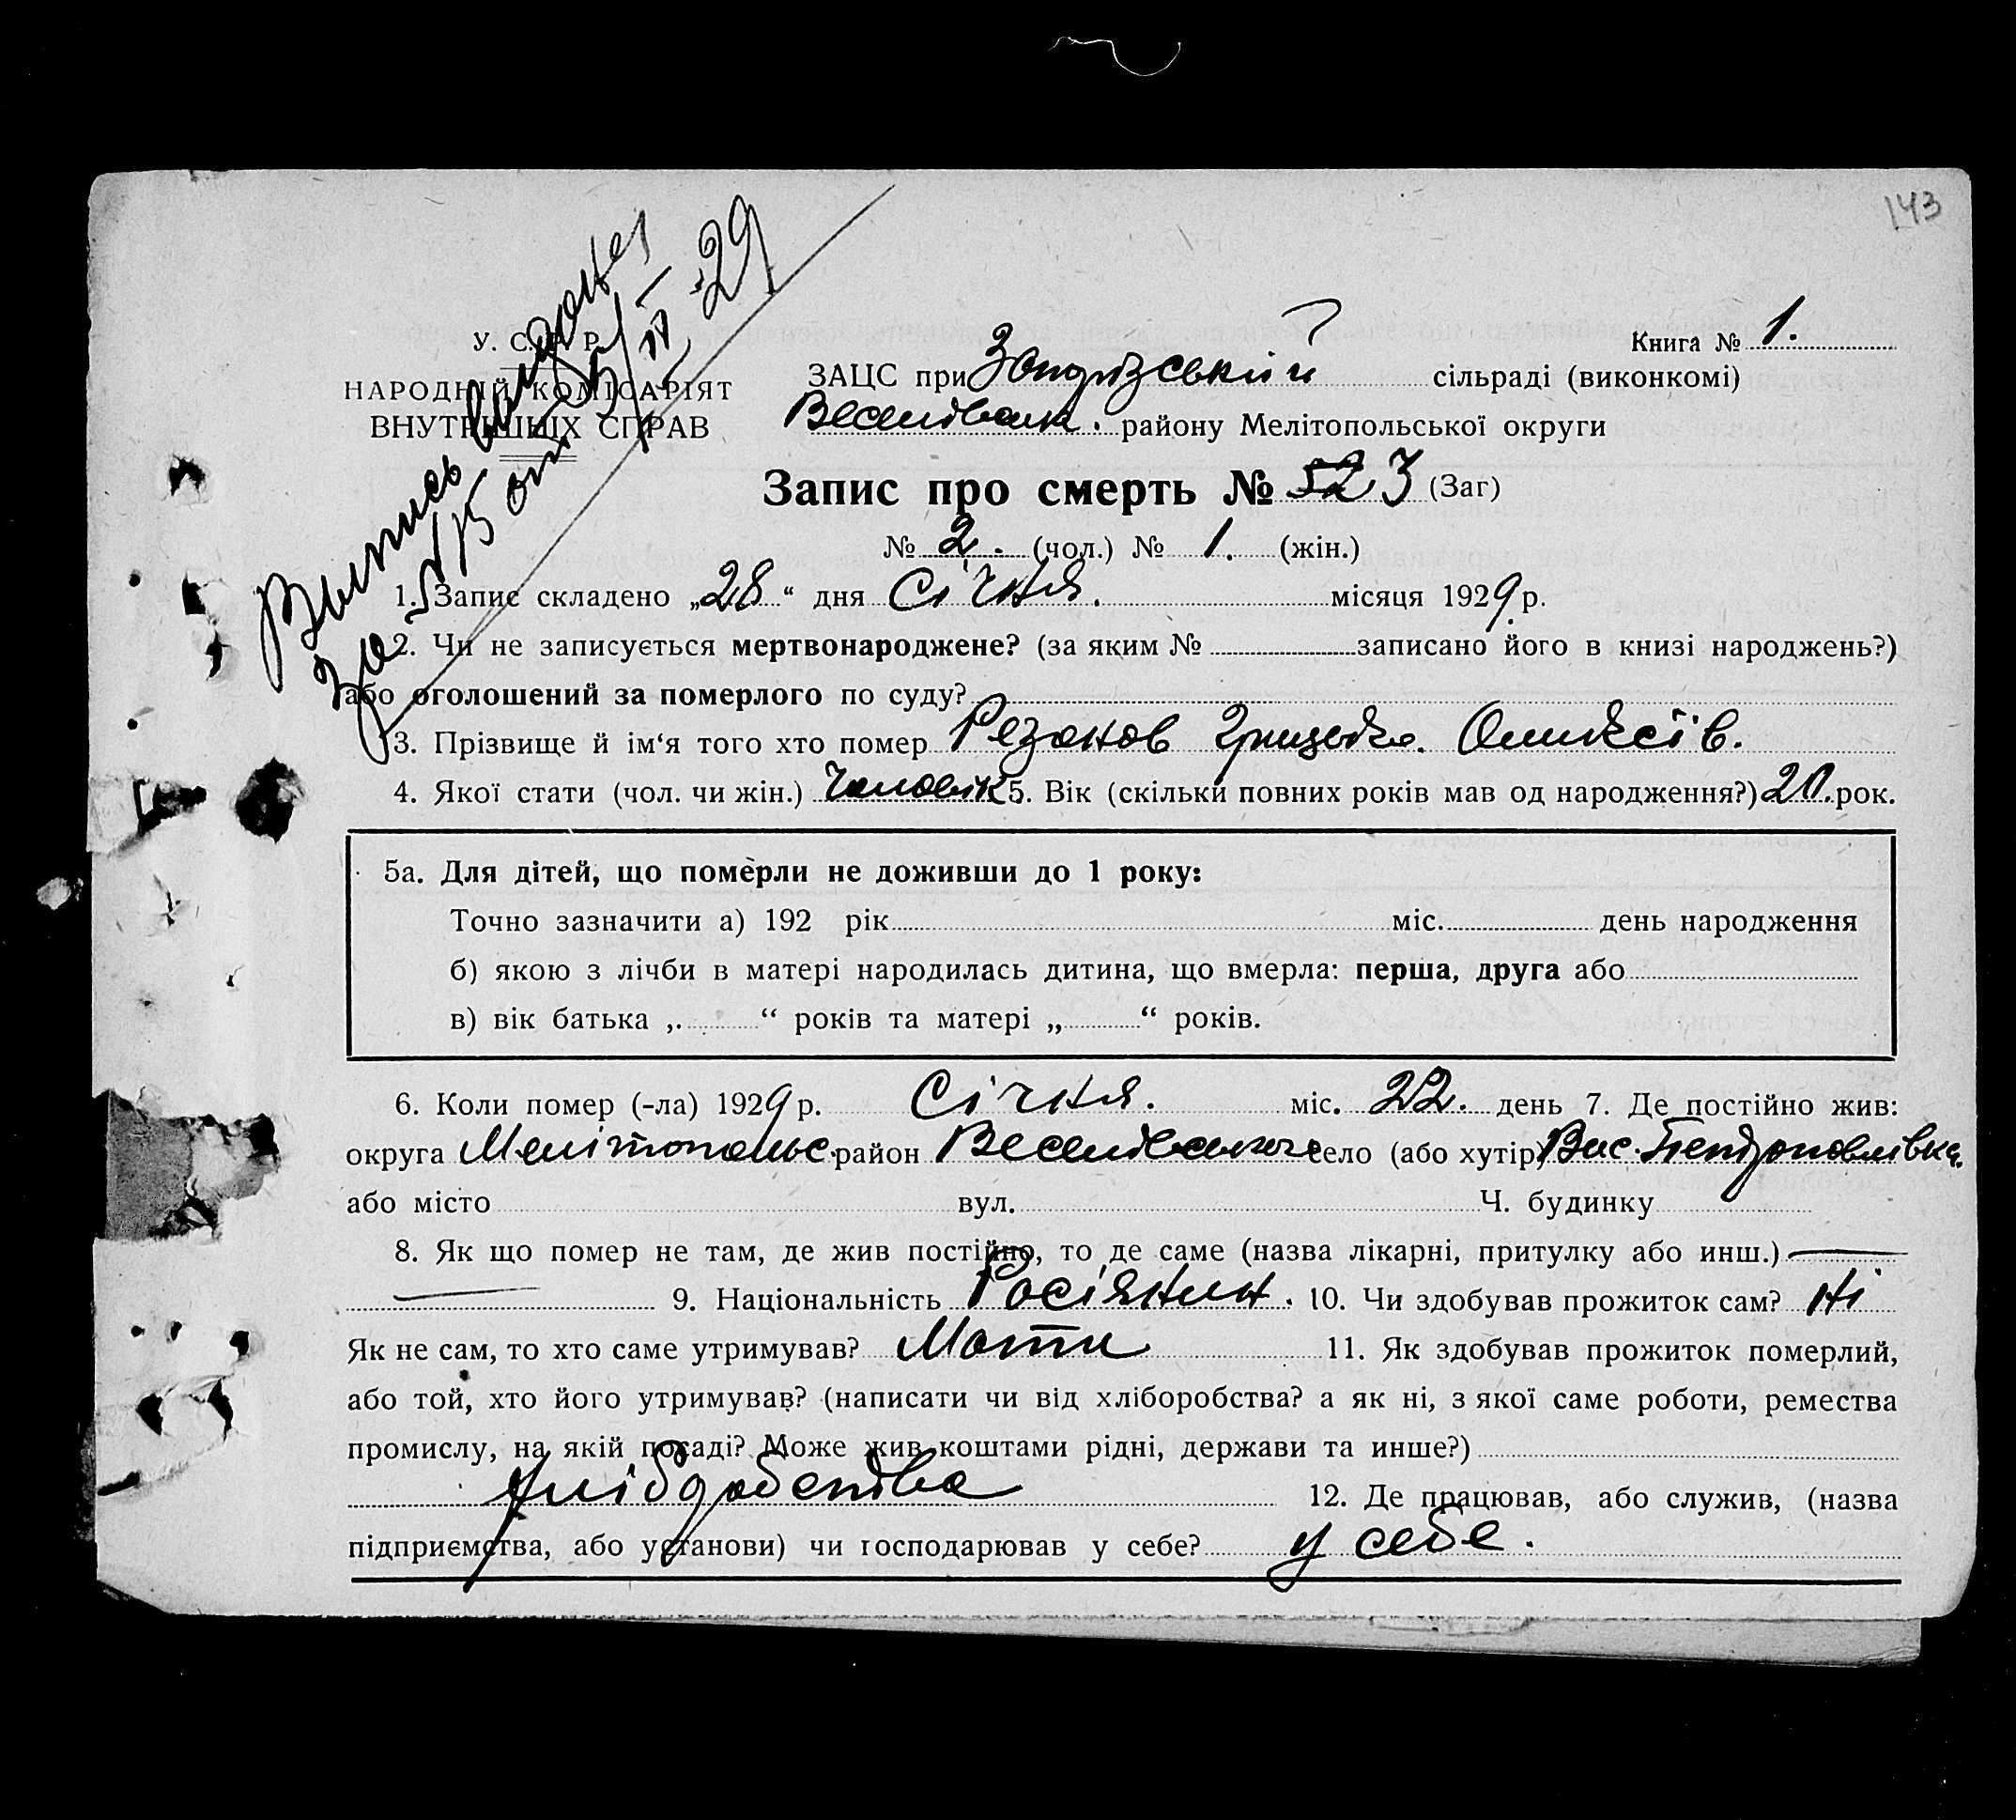 143
Выпись выдана
за № 15 от 5/IV-29
У. С. Р. Р.
НАРОДНІЙ КОМІСАРІЯТ
ВНУТРІШНІХ СПРАВ
Книга № 1.
ЗАЦС при сільраді (виконкомі)
Веселівськ. району Мелітопольської округи
Запис про смерть № 3 (Заг)
№ 2. (чол.) № 1. (жін.)
1. Запис складено „28“ дня Січня. місяця 1929 р.
2. Чи не записується мертвонароджене? (за яким № записано його в книзі народжень?)
або оголошений за померлого по суду?
3. Прізвище й ім‘я того хто помер Рязанов Грицько Олексіїв.
4. Якої стати (чол. чи жін.) Чоловік 5. Вік (скільки повних років мав од народження?) 20. рок.
5а. Для дітей, що померли не доживши до 1 року:
Точно зазначити а) 192 рік міс. день народження
б) якою з лічби в матері народилась дитина, що вмерла: перша, друга або
в) вік батька „ “ років та матері „ “ років.
6. Коли помер (-ла) 1929 р. Січня. міс. 22. день 7. Де постійно жив:
округа Мелітопольс. район Веселівського село (або хутір) Вис. Петропавлівка.
або місто вул. Ч. будинку
8. Як що помер не там, де жив постійно, то де саме (назва лікарні, притулку або инш.) —
— 9. Національність Росіянин. 10. Чи здобував прожиток сам? Ні
Як не сам, то хто саме утримував? Мати 11. Як здобував прожиток померлий,
або той, хто його утримував? (написати чи від хліборобства? а як ні, з якої саме роботи, ремества
промислу, на якій посаді? Може жив коштами рідні, держави та инше?)
Хлібдобства 12. Де працював, або служив, (назва
підприємства, або установи) чи господарював у себе? у себе.